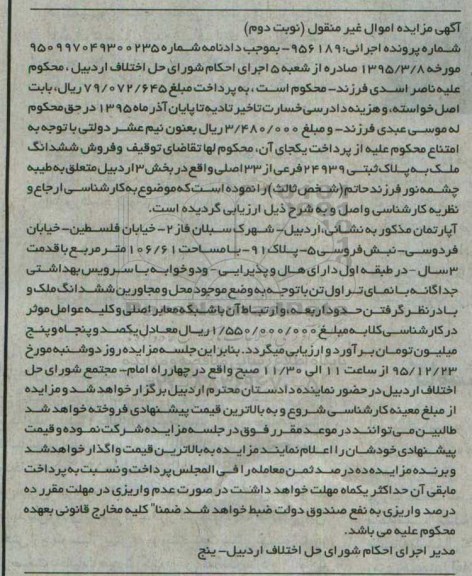 آگهی مزایده اموال غیر منقول (نوبت دوم)
شماره پرونده اجرائی: ۹۵۶۱۸۹- بموجب دادنامه شماره ۹۵۰۹۹۷۰۴۹۳۰۰۲۳۵
مورخه ۱۳۹۵/۳/۸ صادره از شعبه ۵ اجرای احکام شورای حل اختلاف اردبیل، محکوم
علیه ناصر اسدی فرزند- محکوم است، به پرداخت مبلغ ۷۹/۰۷۲/۶۴۵ ریال، بابت
اصل خواسته، و هزینه دادرسی خسارت تاخیر تادیه تا پایان آذر ماه ۱۳۹۵ در حق محکوم
له موسی عبدی فرزند- و مبلغ ۳/۴۸۰/۰۰۰ ریال بعنون نیم عشر دولتی با توجه به
امتناع محکوم علیه از پرداخت یکجای آن، محکوم لها تقاضای توقیف و فروش ششدانگ
ملک به پلاک ثبتی ۲۴۹۳۹ فرعی از ۳۳ اصلی واقع در بخش ۳ اردبیل متعلق به طیبه
چشمه نور فرزند حاتم (شخص ثالث) را نموده است که موضوع به کارشناسی ارجاع و
نظریه کارشناسی واصل و به شرح ذیل ارزیابی گردیده است.
آپارتمان مذکور به نشانی، اردبیل- شهرک سبلان فاز ۲- خیابان فلسطین- خیابان
فردوسی- نبش فروسی ۵- پلاک ۹۱- با مساحت ۱۰۶/۶۱ متر مربع با قدمت
۳ سال- در طبقه اول دارای هال و پذیرایی- ودو خوابه با سرویس بهداشتی
جداگانه با نمای تراول تن با توجه به وضع موجود محل و مجاورین ششدانگ ملک و
با در نظر گرفتن حدود اربعه، و ارتباط آن با شبکه معابر اصلی و کلیه عوامل موثر
در کارشناسی کلا به مبلغ ۱/۵۵۰/۰۰۰/۰۰۰ ریال معادل یکصد و پنجاه و پنج
میلیون تومان برآورد و ارزیابی میگردد. بنابراین جلسه مزایده روز دوشنبه مورخ
۹۵/۱۲/۲۳ از ساعت ۱۱ الی ۱۱/۳۰ صبح واقع در چهارراه امام- مجتمع شورای حل
اختلاف اردبیل در حضور نماینده دادستان محترم اردبیل برگزار خواهد شد و مزایده
از مبلغ معینه کارشناسی شروع و به بالاترین قیمت پیشنهادی فروخته خواهد شد
طالبین می توانند در موعد مقرر فوق در جلسه مزایده شرکت نموده و قیمت
پیشنهادی خودشان را اعلام نمایند مزایده به بالاترین قیمت واگذار خواهد شد
و برنده مزایده ده درصد ثمن معامله را فی المجلس پرداخت و نسبت به پرداخت
مابقی آن حداکثر یکماه مهلت خواهد داشت در صورت عدم واریزی در مهلت مقرر ده
درصد واریزی به نفع صندوق دولت ضبط خواهد شد ضمنا" کلیه مخارج قانونی بعهده
محکوم علیه می باشد.
مدیر اجرای احکام شورای حل اختلاف اردبیل- پنج